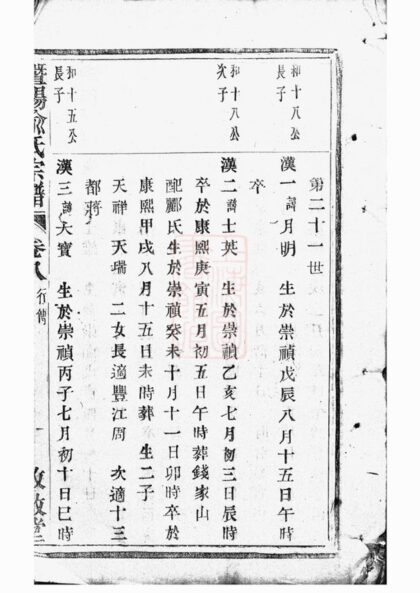 第二十一世
和十八公
長子
漢一諱月明 生於崇禎戊辰八月十五日午時
卒
和十八公
次子
漢二諱士英 生於崇禎乙亥七月初三日辰時
卒於康熙庚寅五月初五日午時葬錢家山
配酈氏生於崇禎癸未十月十一日卯時卒於
康熙甲戌八月十五日未時葬 生二子
天祥 天瑞 二女長適豐江周 次適十三
都蔣
和十五公
長子
漢三諱大寶 生於崇禎丙子七月初十日巳時
暨陽 氏宗譜 卷八 行傳
敦堂